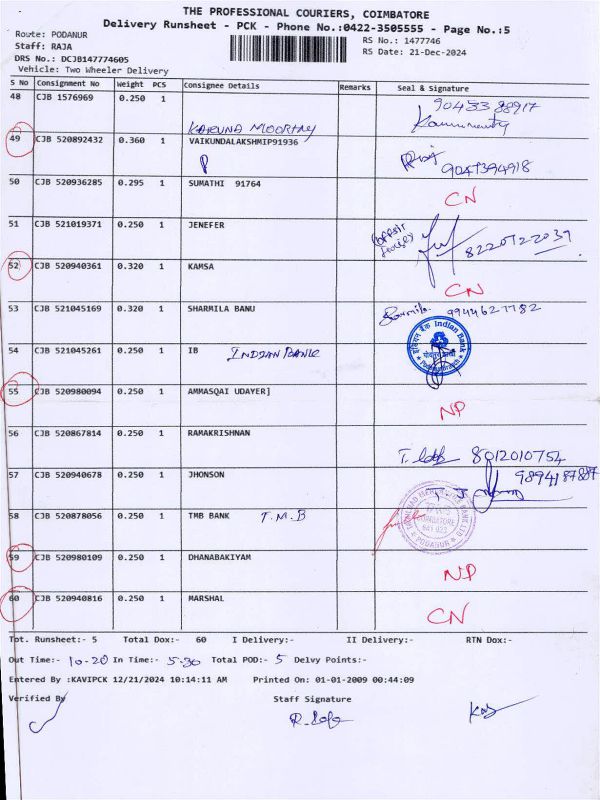 THE PROFESSIONAL COURIERS, COIMBATORE
Delivery Runsheet - PCK - Phone No.:0422-3505555 - Page No.:5
Route: PODANUR
RS No.: 1477746
Staff: RAJA
RS Date: 21-Dec-2024
DRS No.: DCJB147774605
Vehicle: Two Wheeler Delivery
S No Consignment No Weight PCS Consignee Details Remarks Seal & Signature
48 CJB 1576969 0.250 1 KARUNA MOORTHY 9043388917
49 CJB 520892432 0.360 1 VAIKUNDALAKSHMIP91936 9047394918
50 CJB 520936285 0.295 1 SUMATHI 91764 CN
51 CJB 521019371 0.250 1 JENEFER 8220722039
52 CJB 520940361 0.320 1 KAMSA CN
53 CJB 521045169 0.320 1 SHARMILA BANU Sarmila. 9944627782
54 CJB 521045261 0.250 1 IB INDIAN BANK Indian Bank
55 CJB 520980094 0.250 1 AMMASQAI UDAYER] NP
56 CJB 520867814 0.250 1 RAMAKRISHNAN 8012010754
57 CJB 520940678 0.250 1 JHONSON
58 CJB 520878056 0.250 1 TMB BANK T.M.B COIMBATORE PODANUR
59 CJB 520980109 0.250 1 DHANABAKIYAM NP
60 CJB 520940816 0.250 1 MARSHAL CN
Tot. Runsheet:- 5 Total Dox:- 60 I Delivery:- II Delivery:- RTN Dox:-
Out Time:- 10-20 In Time:- 5-30 Total POD:- 5 Delvy Points:-
Entered By :KAVIPCK 12/21/2024 10:14:11 AM Printed On: 01-01-2009 00:44:09
Verified By Staff Signature